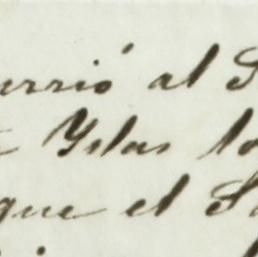 urrió al S
Yslas lo
que el S